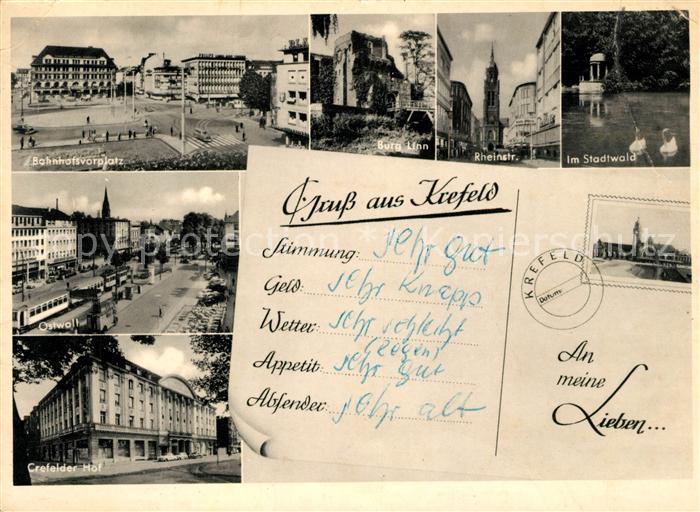 Bahnhofsvorplatz
Burg Linn
Rheinstr.
Im Stadtwald
Ostwall
Crefelder Hof
Gruß aus Krefeld
Stimmung: sehr gut
Geld: sehr knapp
Wetter: sehr schlecht
(Regen)
Appetit: sehr gut
Absender: sehr alt
KREFELD
Datum:
An
meine
Lieben...